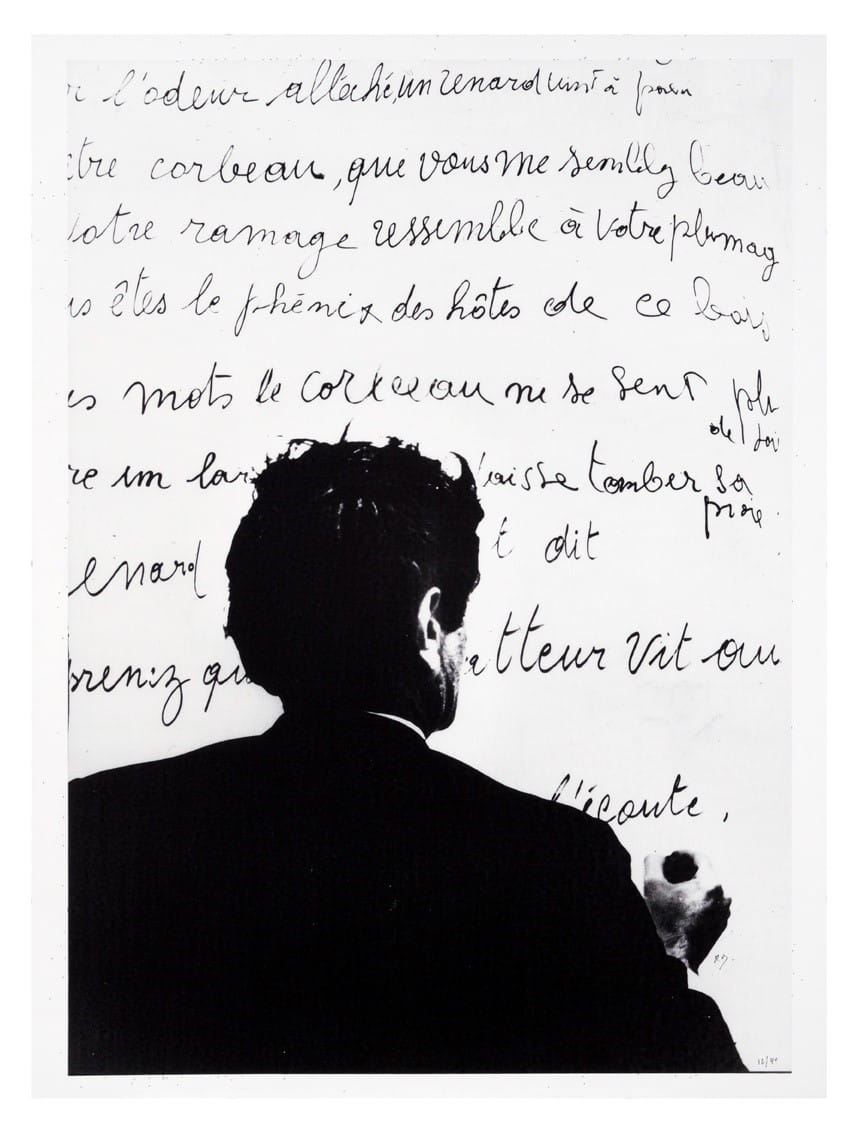 l'odeur alléché, un renard vint à
tre corbeau, que vous me semblez beau
votre ramage ressemble à votre plumag
us êtes le phénix des hôtes de ce bois
es mots le corbeau ne se sent plu
de soi
re un lar laisse tomber sa
proie
enard t dit
prenez qu atteur vit au
l'écoute,
12/40